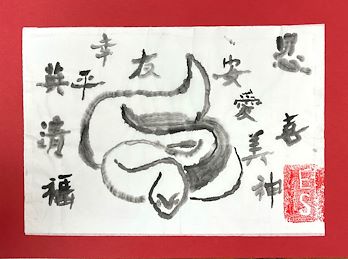 幸 友 安
英 平 愛
清 美 喜
福 神
ES